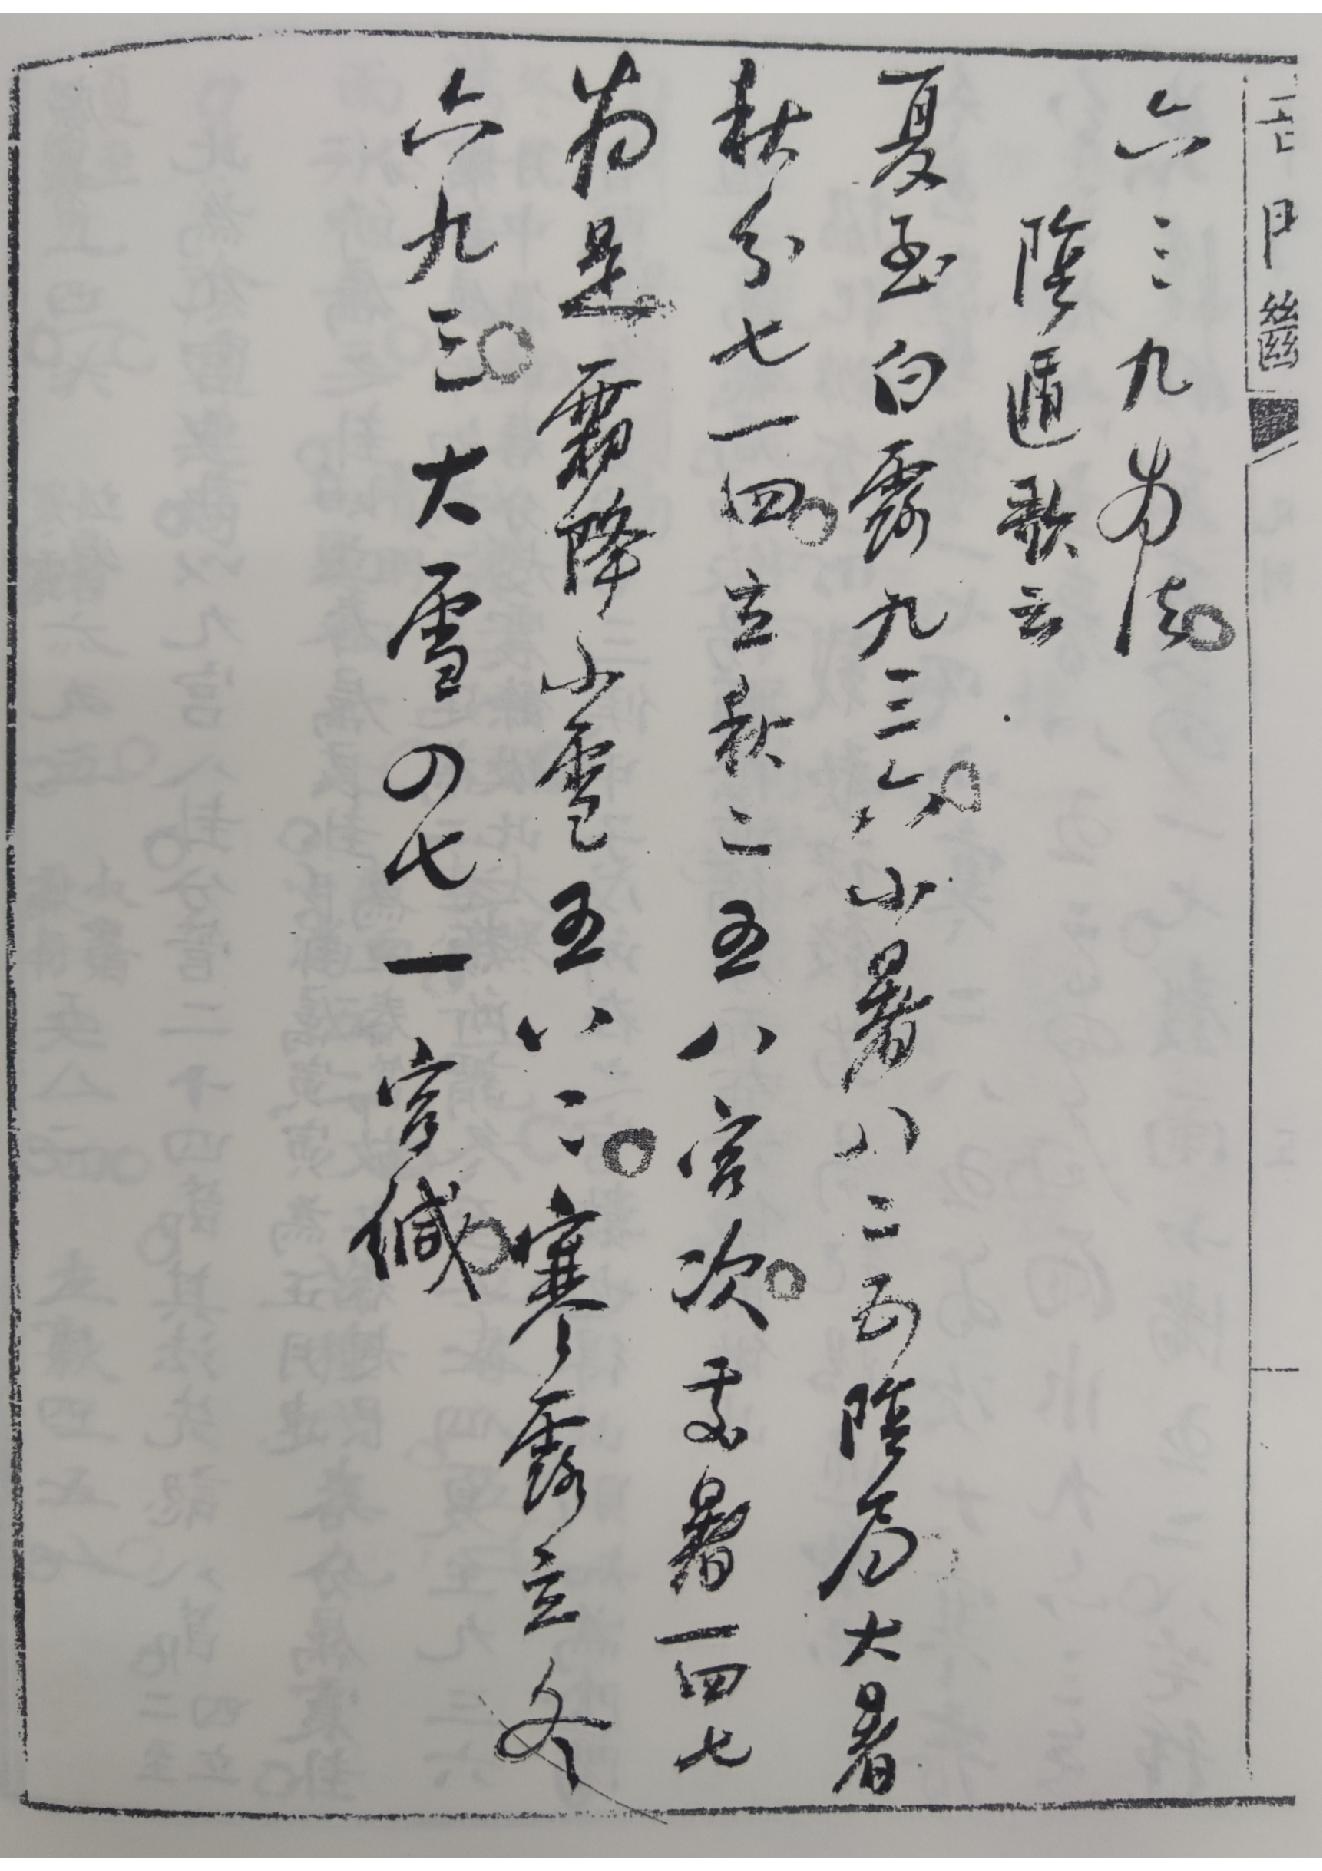 六三九为法。
陰遁歌云
夏至白露九三六。小暑八二五陰局大暑
秋分七一四。立秋二五八宫次。處暑一四七
为是霜降小雪五八二。寒露立冬
六九三。大雪四七一宫緘。